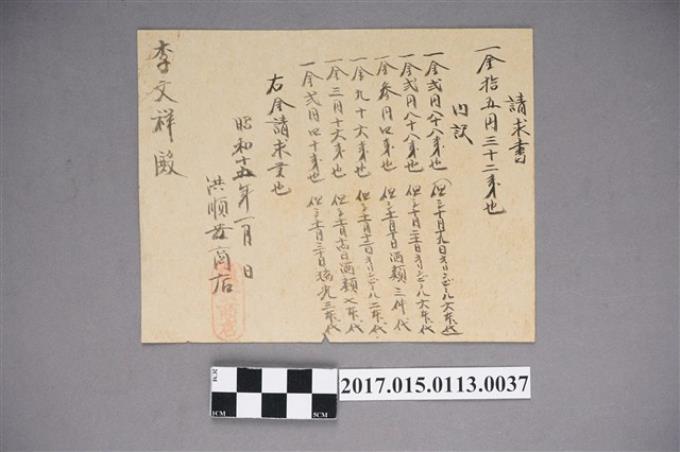 請求書
一金拾五円三十二銭也
内訳
一金弍円八十八銭也 但シ十月九日キリンビール六本代
一金弍円八十八銭也 但シ十月二十日キリンビール六本代
一金参円四銭也 但シ十二月十日酒類三件代
一金九十六銭也 但シ十二月十二日キリンビール二本代
一金三円十六銭也 但シ十二月十六日酒類七本代
一金弍円四十銭也 但シ十二月三十日瑞光三本代
右金請求業也
昭和十五年一月 日
洪順發商店
李文祥殿
2017.015.0113.0037
1CM
5CM